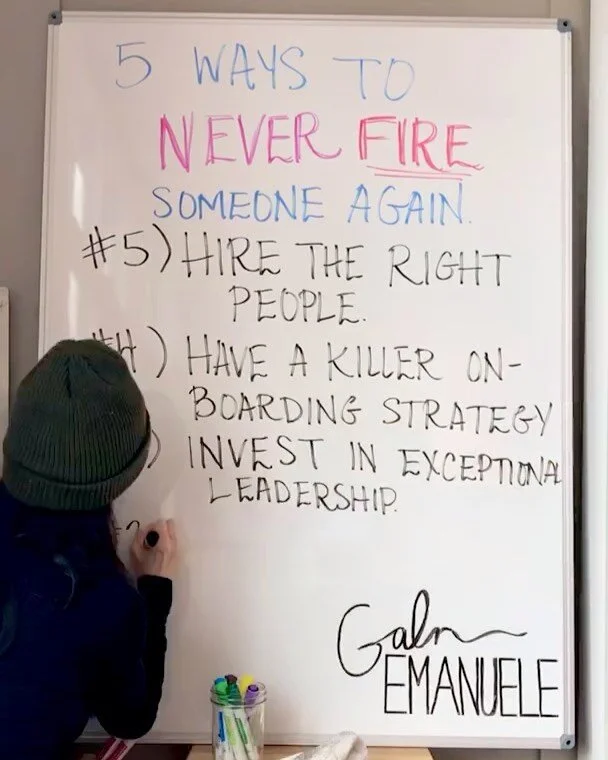 5 WAYS TO
NEVER FIRE
SOMEONE AGAIN.
#5) HIRE THE RIGHT
PEOPLE.
#4) HAVE A KILLER ON-
BOARDING STRATEGY
) INVEST IN EXCEPTIONAL
LEADERSHIP.
#2
Galn
EMANUELE